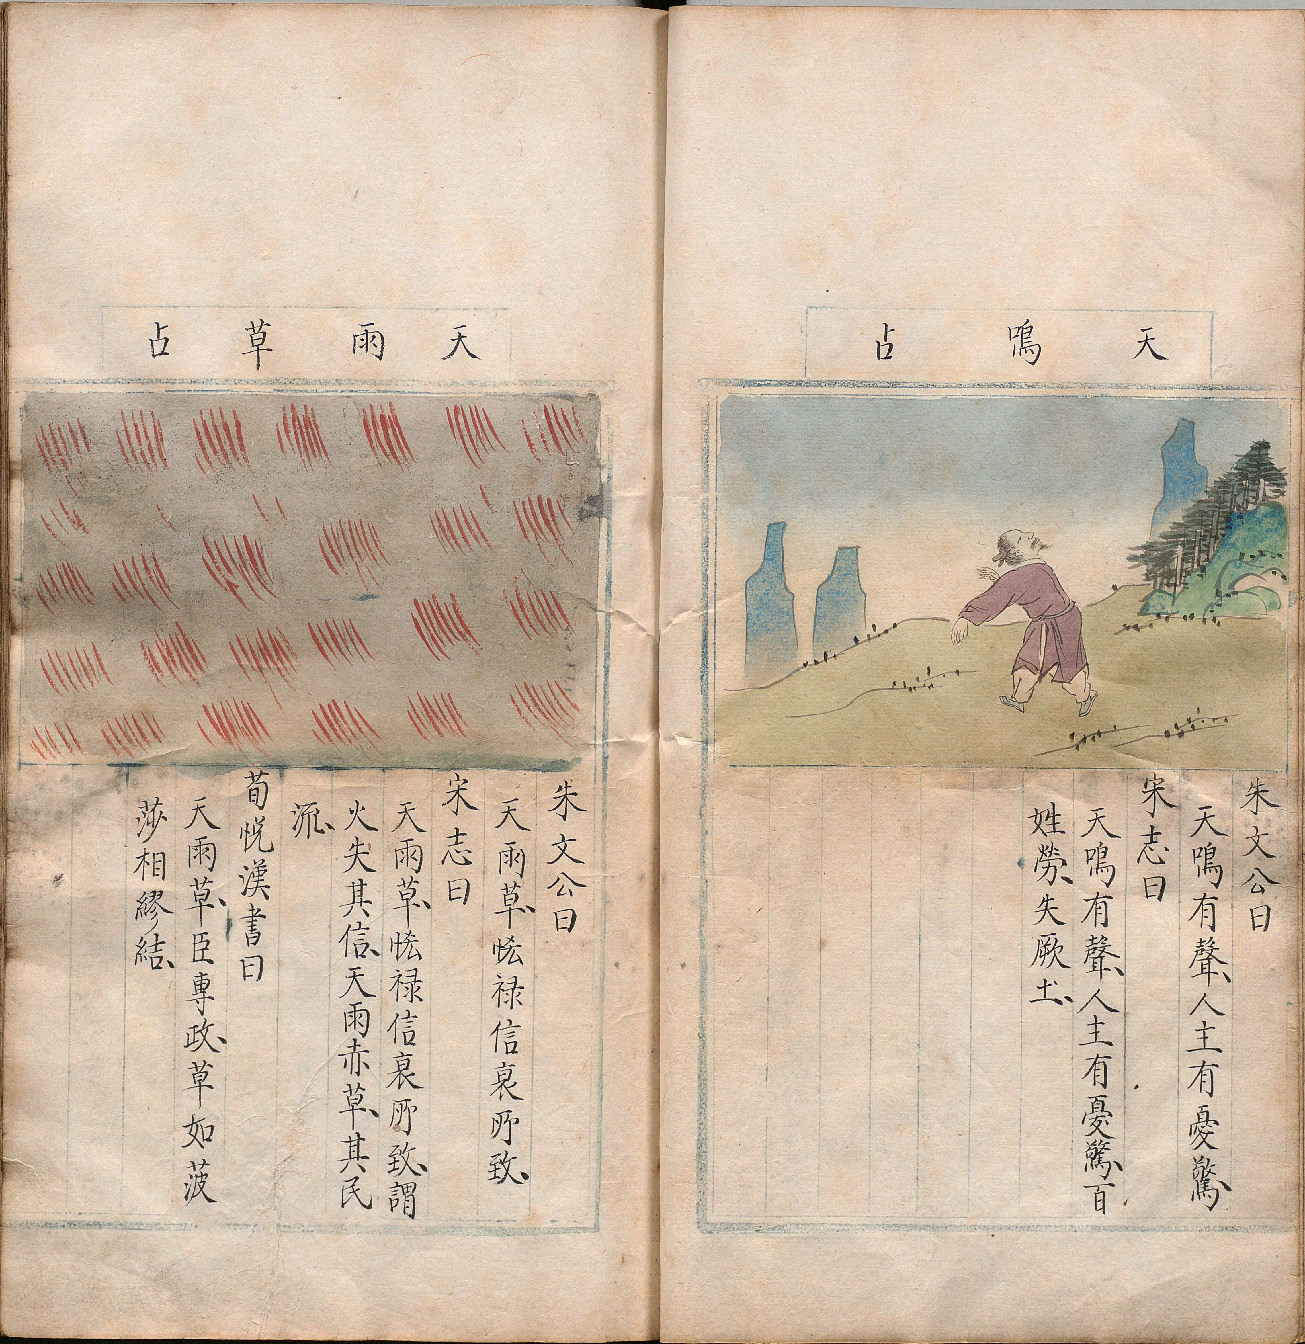 天鳴占
朱文公曰
天鳴有聲、人主有憂驚、
宋志曰
天鳴有聲、人主有憂驚、百
姓勞、失厥土、
天雨草占
朱文公曰
天雨草、恡禄信衰所致、
宋志曰
天雨草、恡禄信衰所致、謂
火失其信、天雨赤草、其民
流、
荀悦漢書曰
天雨草、臣專政、草如莎
莎相繆結、